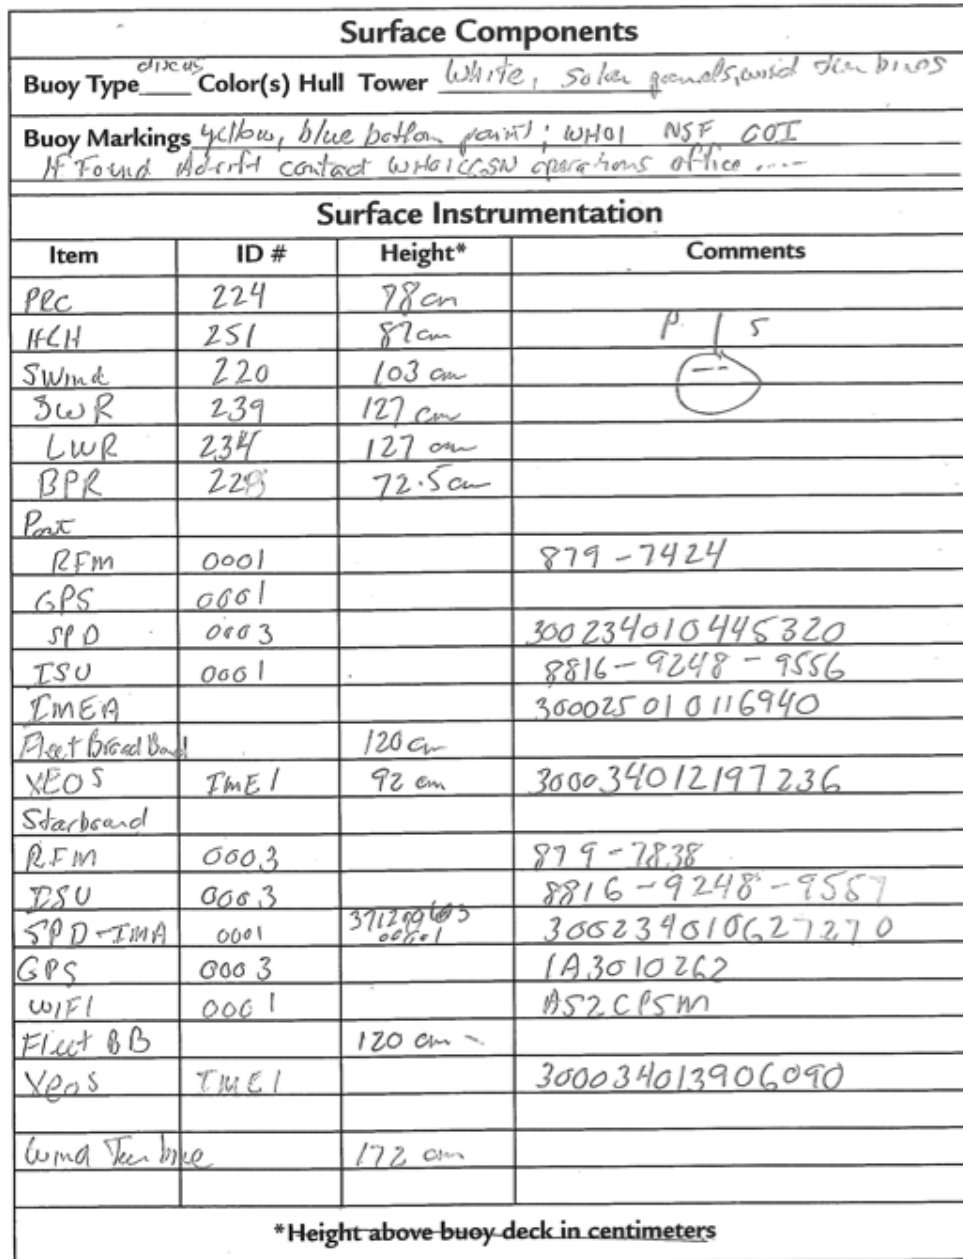 Surface Components
discus
Buoy Type Color(s) Hull Tower White, Solar panels, wind turbines
Buoy Markings yellow, blue bottom paint; WHOI NSF OOI
If Found Adrift contact WHOI CGSN operations office ....
Surface Instrumentation
Item ID # Height* Comments
PRC 224 78 cm
HRH 251 87 cm P. S
SWind 220 103 cm
SWR 239 127 cm
LWR 234 127 cm
BPR 72.5 cm
Port
RFM 0001 879-7424
GPS 0001
SPD 0003 300234010445320
ISU 0001 8816-9248-9556
IMEA 300025010116940
Fleet BroadBand 120 cm
XEOS IMEI 92 cm 300034012197236
Starboard
RFM 0003 879-7838
ISU 0003 8816-9248-9557
SPD-IMA 0001 300234010627270
GPS 0003 1A3010262
WIFI 0001 A52CPSM
Fleet BB 120 cm
Xeos IMEI 300034013906090
Wind Turbine 172 cm
*Height above buoy deck in centimeters